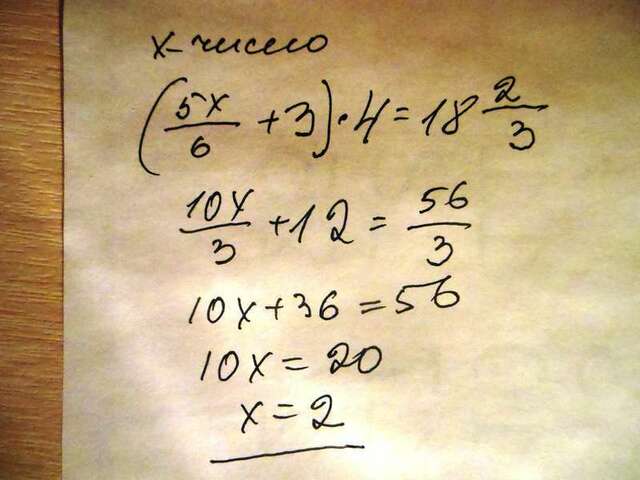 x-число
(5x/6 + 3)·4 = 18 2/3
10x/3 + 12 = 56/3
10x + 36 = 56
10x = 20
x = 2